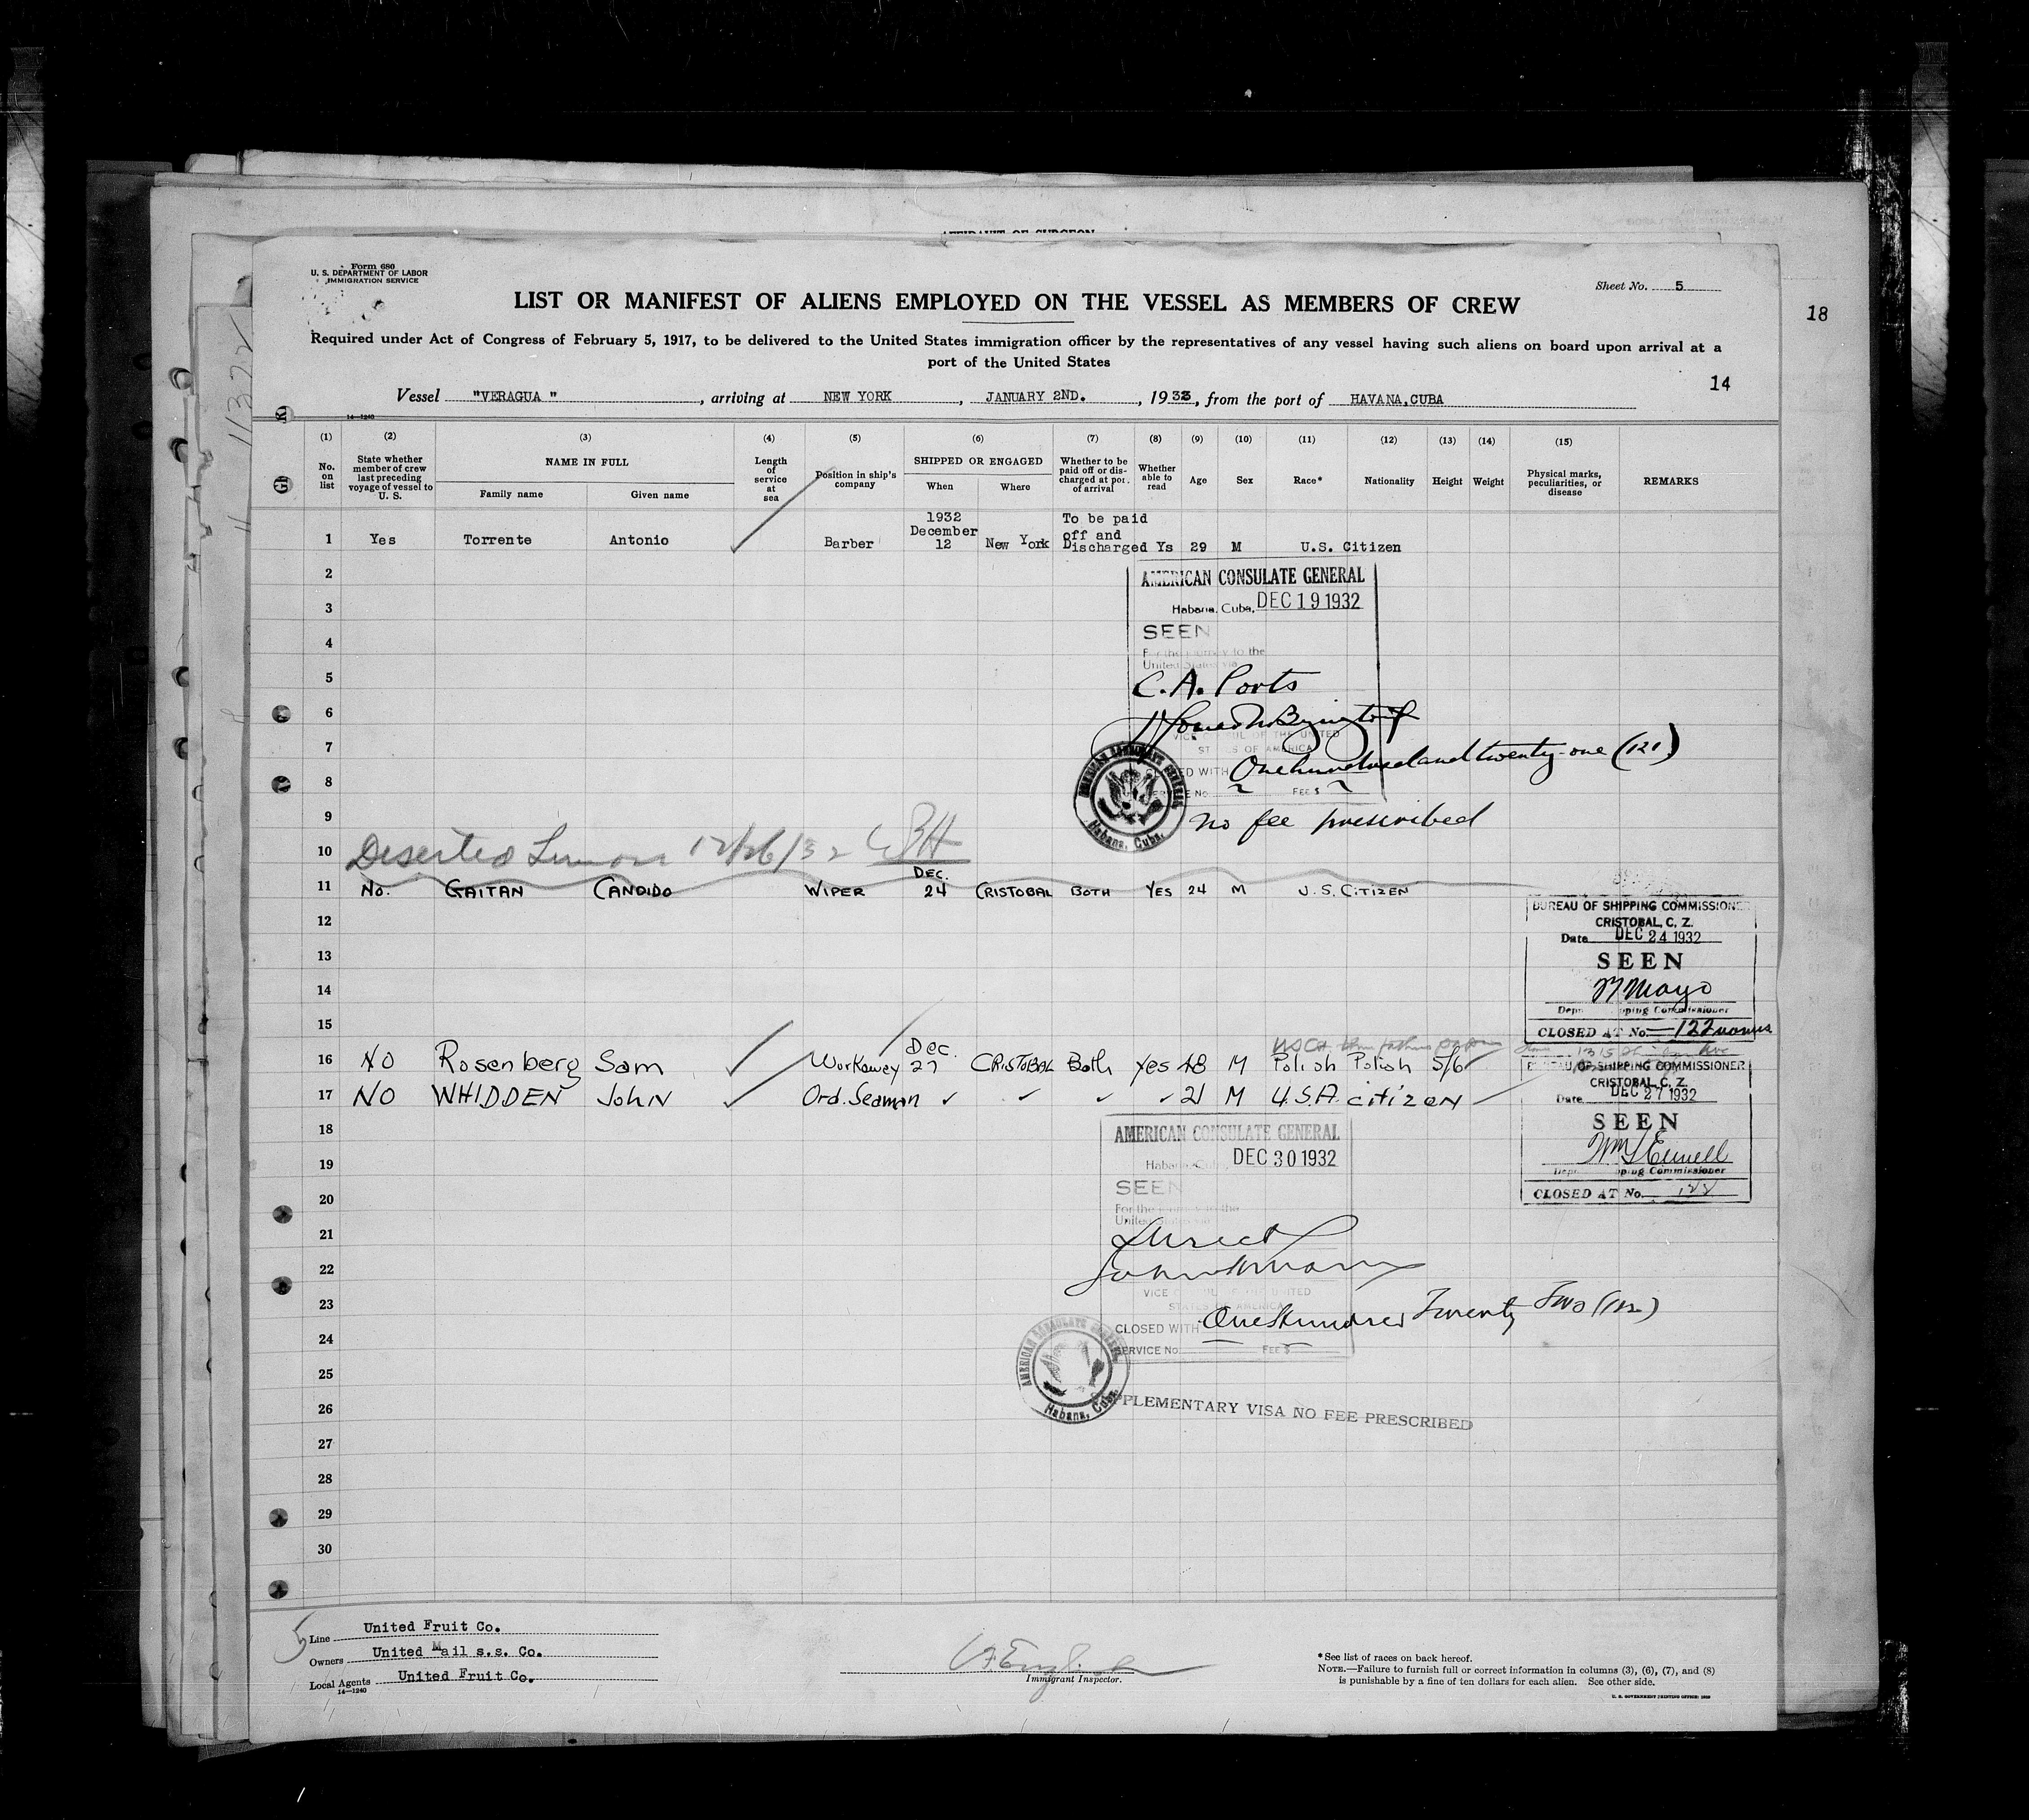 Form 680
U. S. DEPARTMENT OF LABOR
IMMIGRATION SERVICE
Sheet No. 5
LIST OR MANIFEST OF ALIENS EMPLOYED ON THE VESSEL AS MEMBERS OF CREW
18
Required under Act of Congress of February 5, 1917, to be delivered to the United States immigration officer by the representatives of any vessel having such aliens on board upon arrival at a
port of the United States
14
Vessel "VERAGUA ", arriving at NEW YORK, JANUARY 2ND., 1933, from the port of HAVANA,CUBA
14—1240
(1) (2) (3) (4) (5) (6) (7) (8) (9) (10) (11) (12) (13) (14) (15)
No. on list
State whether member of crew last preceding voyage of vessel to U. S.
NAME IN FULL
Family name Given name
Length of service at sea
Position in ship's company
SHIPPED OR ENGAGED
When Where
Whether to be paid off or discharged at port of arrival
Whether able to read
Age Sex Race* Nationality Height Weight
Physical marks, peculiarities, or disease
REMARKS
1 Yes Torrente Antonio Barber 1932 December 12 New York To be paid off and Discharged Ys 29 M U.S. Citizen
2
AMERICAN CONSULATE GENERAL
3
Habana, Cuba, DEC 19 1932
4
SEEN
For the journey to the
United States via
5
C. A. Ports
6
VICE CONSUL OF THE UNITED
7
STATES OF AMERICA
CLOSED WITH One hundred and twenty-one (121)
8
SERVICE No. FEE $
AMERICAN CONSULATE GENERAL
Habana, Cuba.
9
no fee prescribed
10 Deserted Limon 12/26/32
11 No. GAITAN CANDIDO WIPER DEC. 24 CRISTOBAL BOTH YES 24 M U.S. CITIZEN
BUREAU OF SHIPPING COMMISSIONER
12
CRISTOBAL, C. Z.
Date DEC 24 1932
13
SEEN
14
Mayo
Deputy Shipping Commissioner
15
CLOSED AT No. 122
16 NO Rosenberg Sam Workawey Dec. 27 CRISTOBAL Both yes M Polish Polish 5/6
BUREAU OF SHIPPING COMMISSIONER
CRISTOBAL, C. Z.
17 NO WHIDDEN JohN Ord. Seaman ✓ ✓ ✓ ✓ 21 M U.S.A. citizeN
Date DEC 27 1932
18
SEEN
AMERICAN CONSULATE GENERAL
19
Habana, Cuba, DEC 30 1932
Deputy Shipping Commissioner
CLOSED AT No.
20
SEEN
For the journey to the
United States via
21
Direct
22
VICE CONSUL OF THE UNITED
23
STATES OF AMERICA
24
CLOSED WITH One Hundred Twenty Two (122)
SERVICE No. FEE $
AMERICAN CONSULATE GENERAL
Habana, Cuba.
25
26
PLEMENTARY VISA NO FEE PRESCRIBED
27
28
29
30
5
Line United Fruit Co.
Owners United Mail s.s. Co.
Local Agents United Fruit Co.
14—1240
Immigrant Inspector.
*See list of races on back hereof.
NOTE.—Failure to furnish full or correct information in columns (3), (6), (7), and (8)
is punishable by a fine of ten dollars for each alien. See other side.